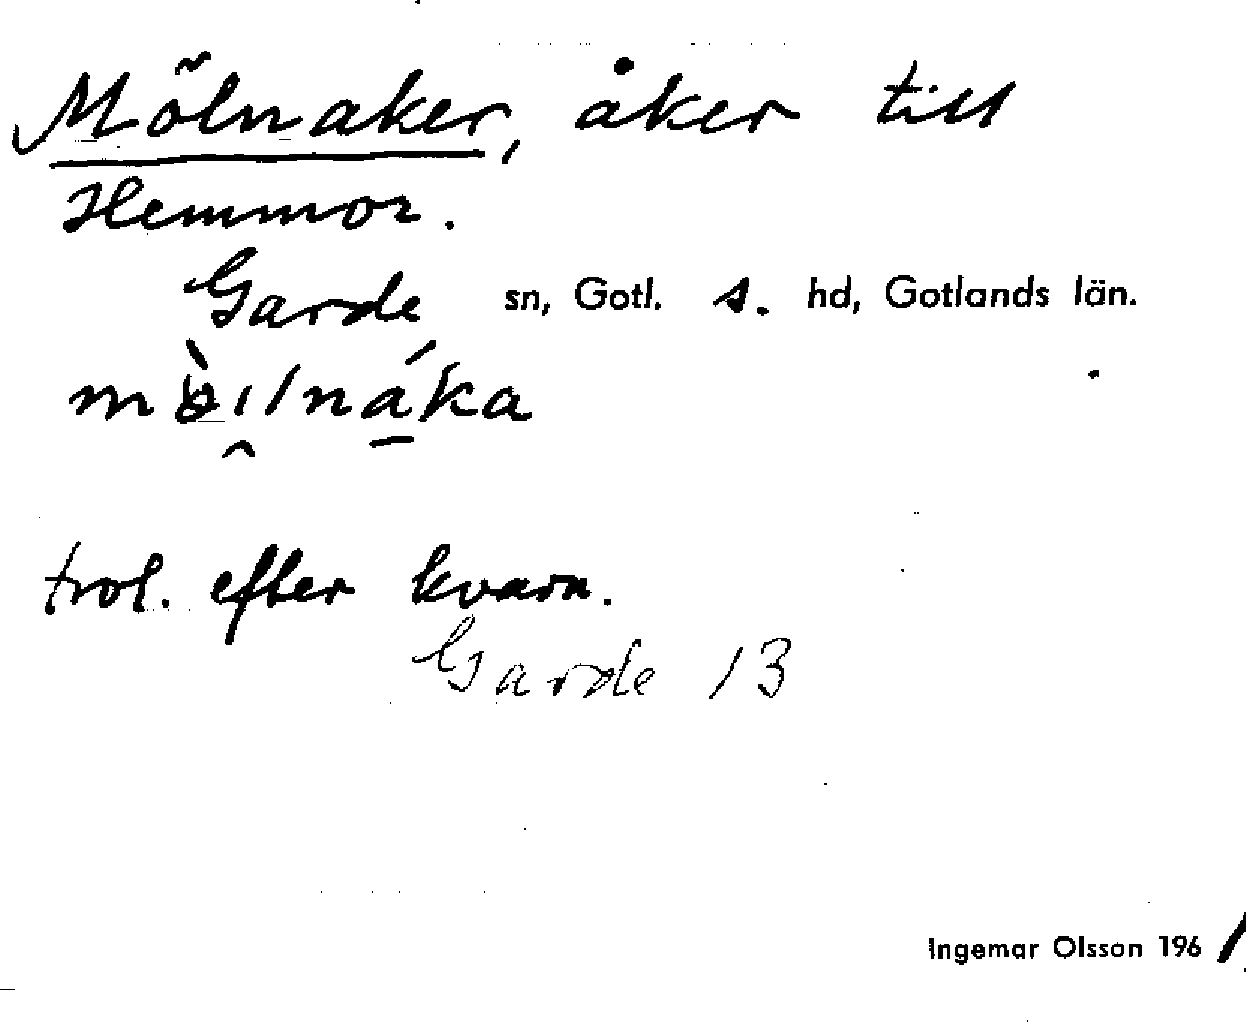 Mölnaker, åker till
Hemmor.
Garde sn, Gotl. s. hd, Gotlands län.
trol. efter kvarn.
Garde 13
Ingemar Olsson 1961